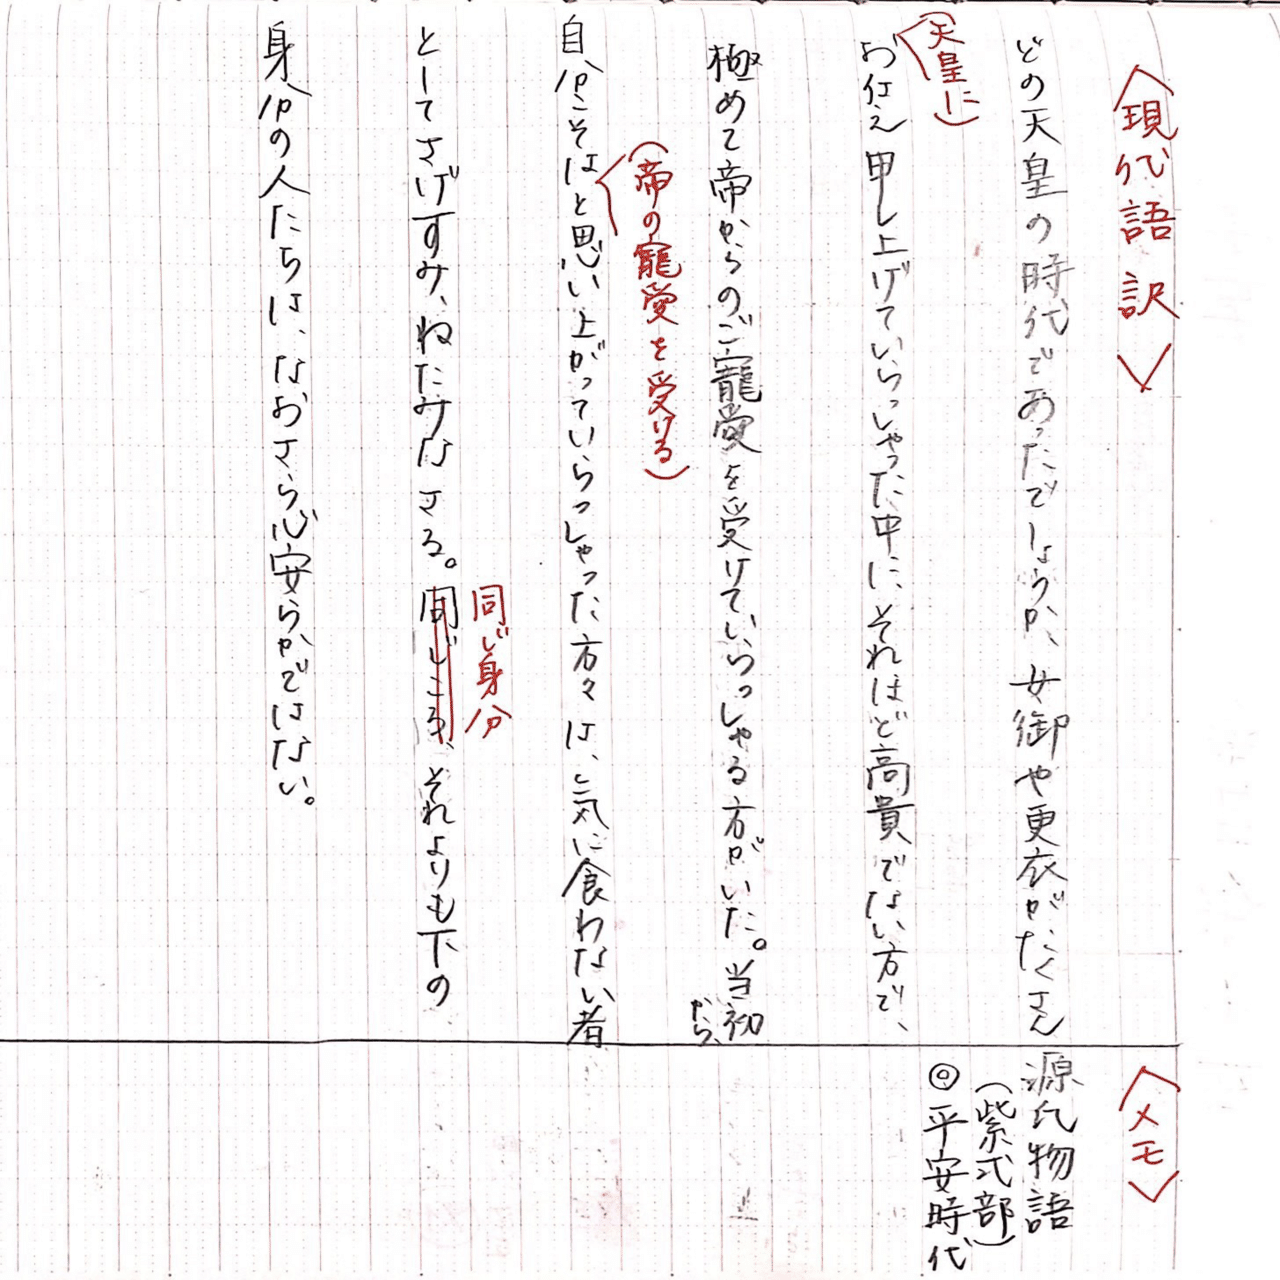 〈現代語訳〉
どの天皇の時代であったでしょうか、女御や更衣がたくさん
(天皇に)
お仕え申し上げていらっしゃった中に、それほど高貴でない方で、
極めて帝からのご寵愛を受けていらっしゃる方がいた。当初
から、
(帝の寵愛を受ける)
自分こそはと思い上がっていらっしゃった方々は、気に食わない者
同じ身分
としてさげすみ、ねたみなさる。同じころ、それよりも下の
身分の人たちは、なおさら心安らかではない。
〈メモ〉
源氏物語
(紫式部)
◎平安時代